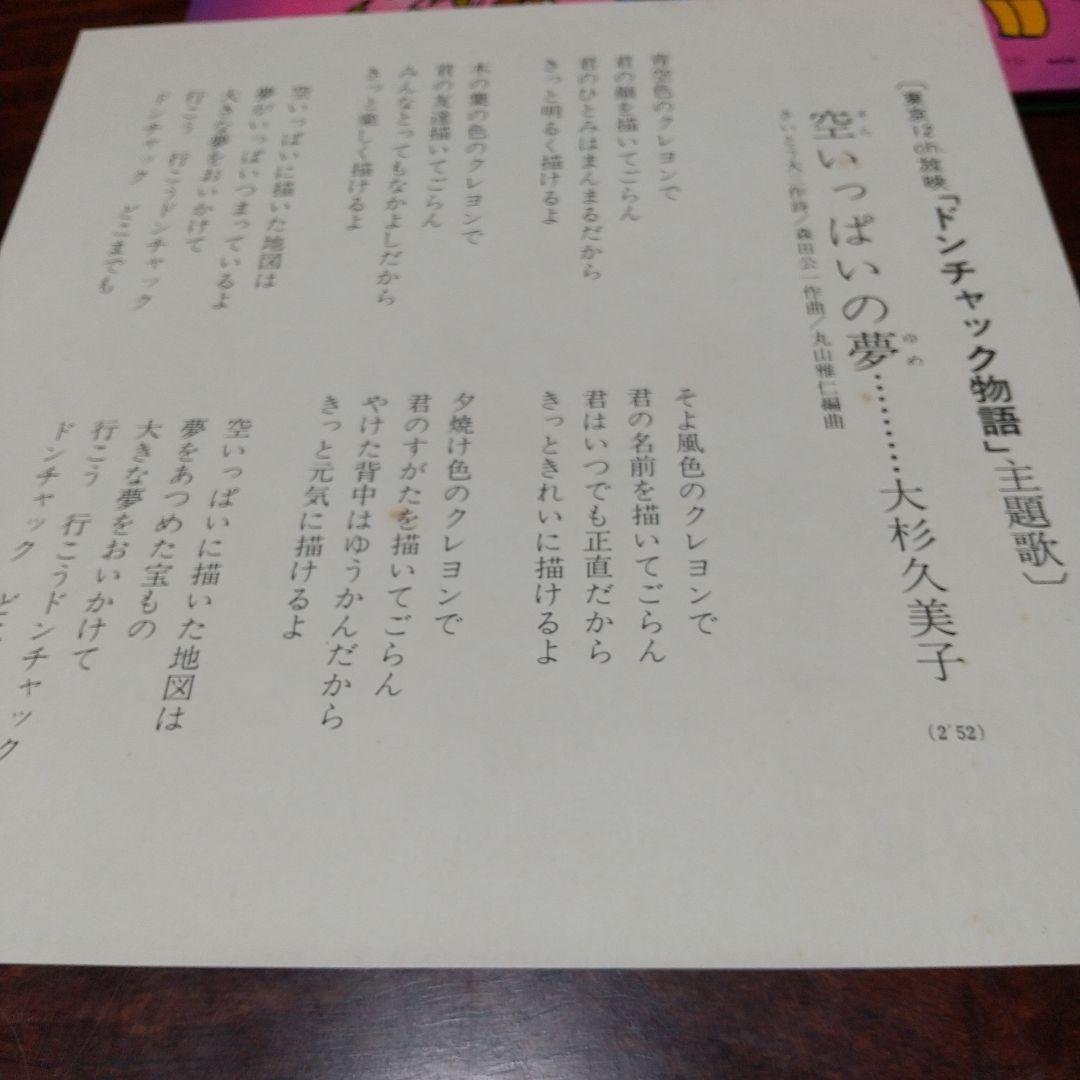 〔東京12ch.放映「ドンチャック物語」主題歌〕
空いっぱいの夢………大杉久美子
そら
ゆめ
(2′52)
さいとう大三作詩／森田公一作曲／丸山雅仁編曲
青空色のクレヨンで
君の顔を描いてごらん
君のひとみはまんまるだから
きっと明るく描けるよ
木の葉の色のクレヨンで
君の友達描いてごらん
みんなとってもなかよしだから
きっと楽しく描けるよ
空いっぱいに描いた地図は
夢がいっぱいつまっているよ
大きな夢をおいかけて
行こう 行こうドンチャック
ドンチャック どこまでも
そよ風色のクレヨンで
君の名前を描いてごらん
君はいつでも正直だから
きっときれいに描けるよ
夕焼け色のクレヨンで
君のすがたを描いてごらん
やけた背中はゆうかんだから
きっと元気に描けるよ
空いっぱいに描いた地図は
夢をあつめた宝もの
大きな夢をおいかけて
行こう 行こうドンチャック
ドンチャック ど